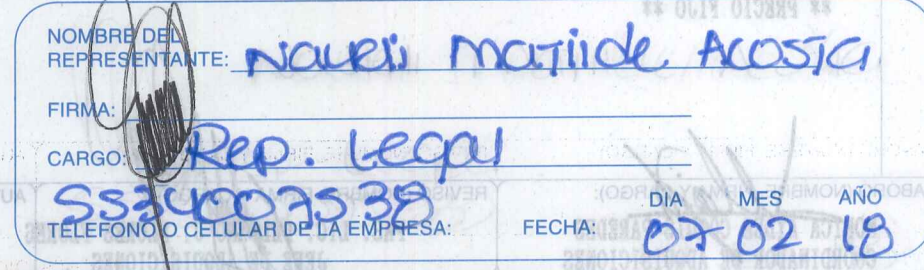 NOMBRE DEL
REPRESENTANTE: Matilde Acosta
FIRMA:
CARGO: Rep. Legal
5534007538
TELEFONO O CELULAR DE LA EMPRESA:
FECHA:
DIA MES AÑO
07 02 18